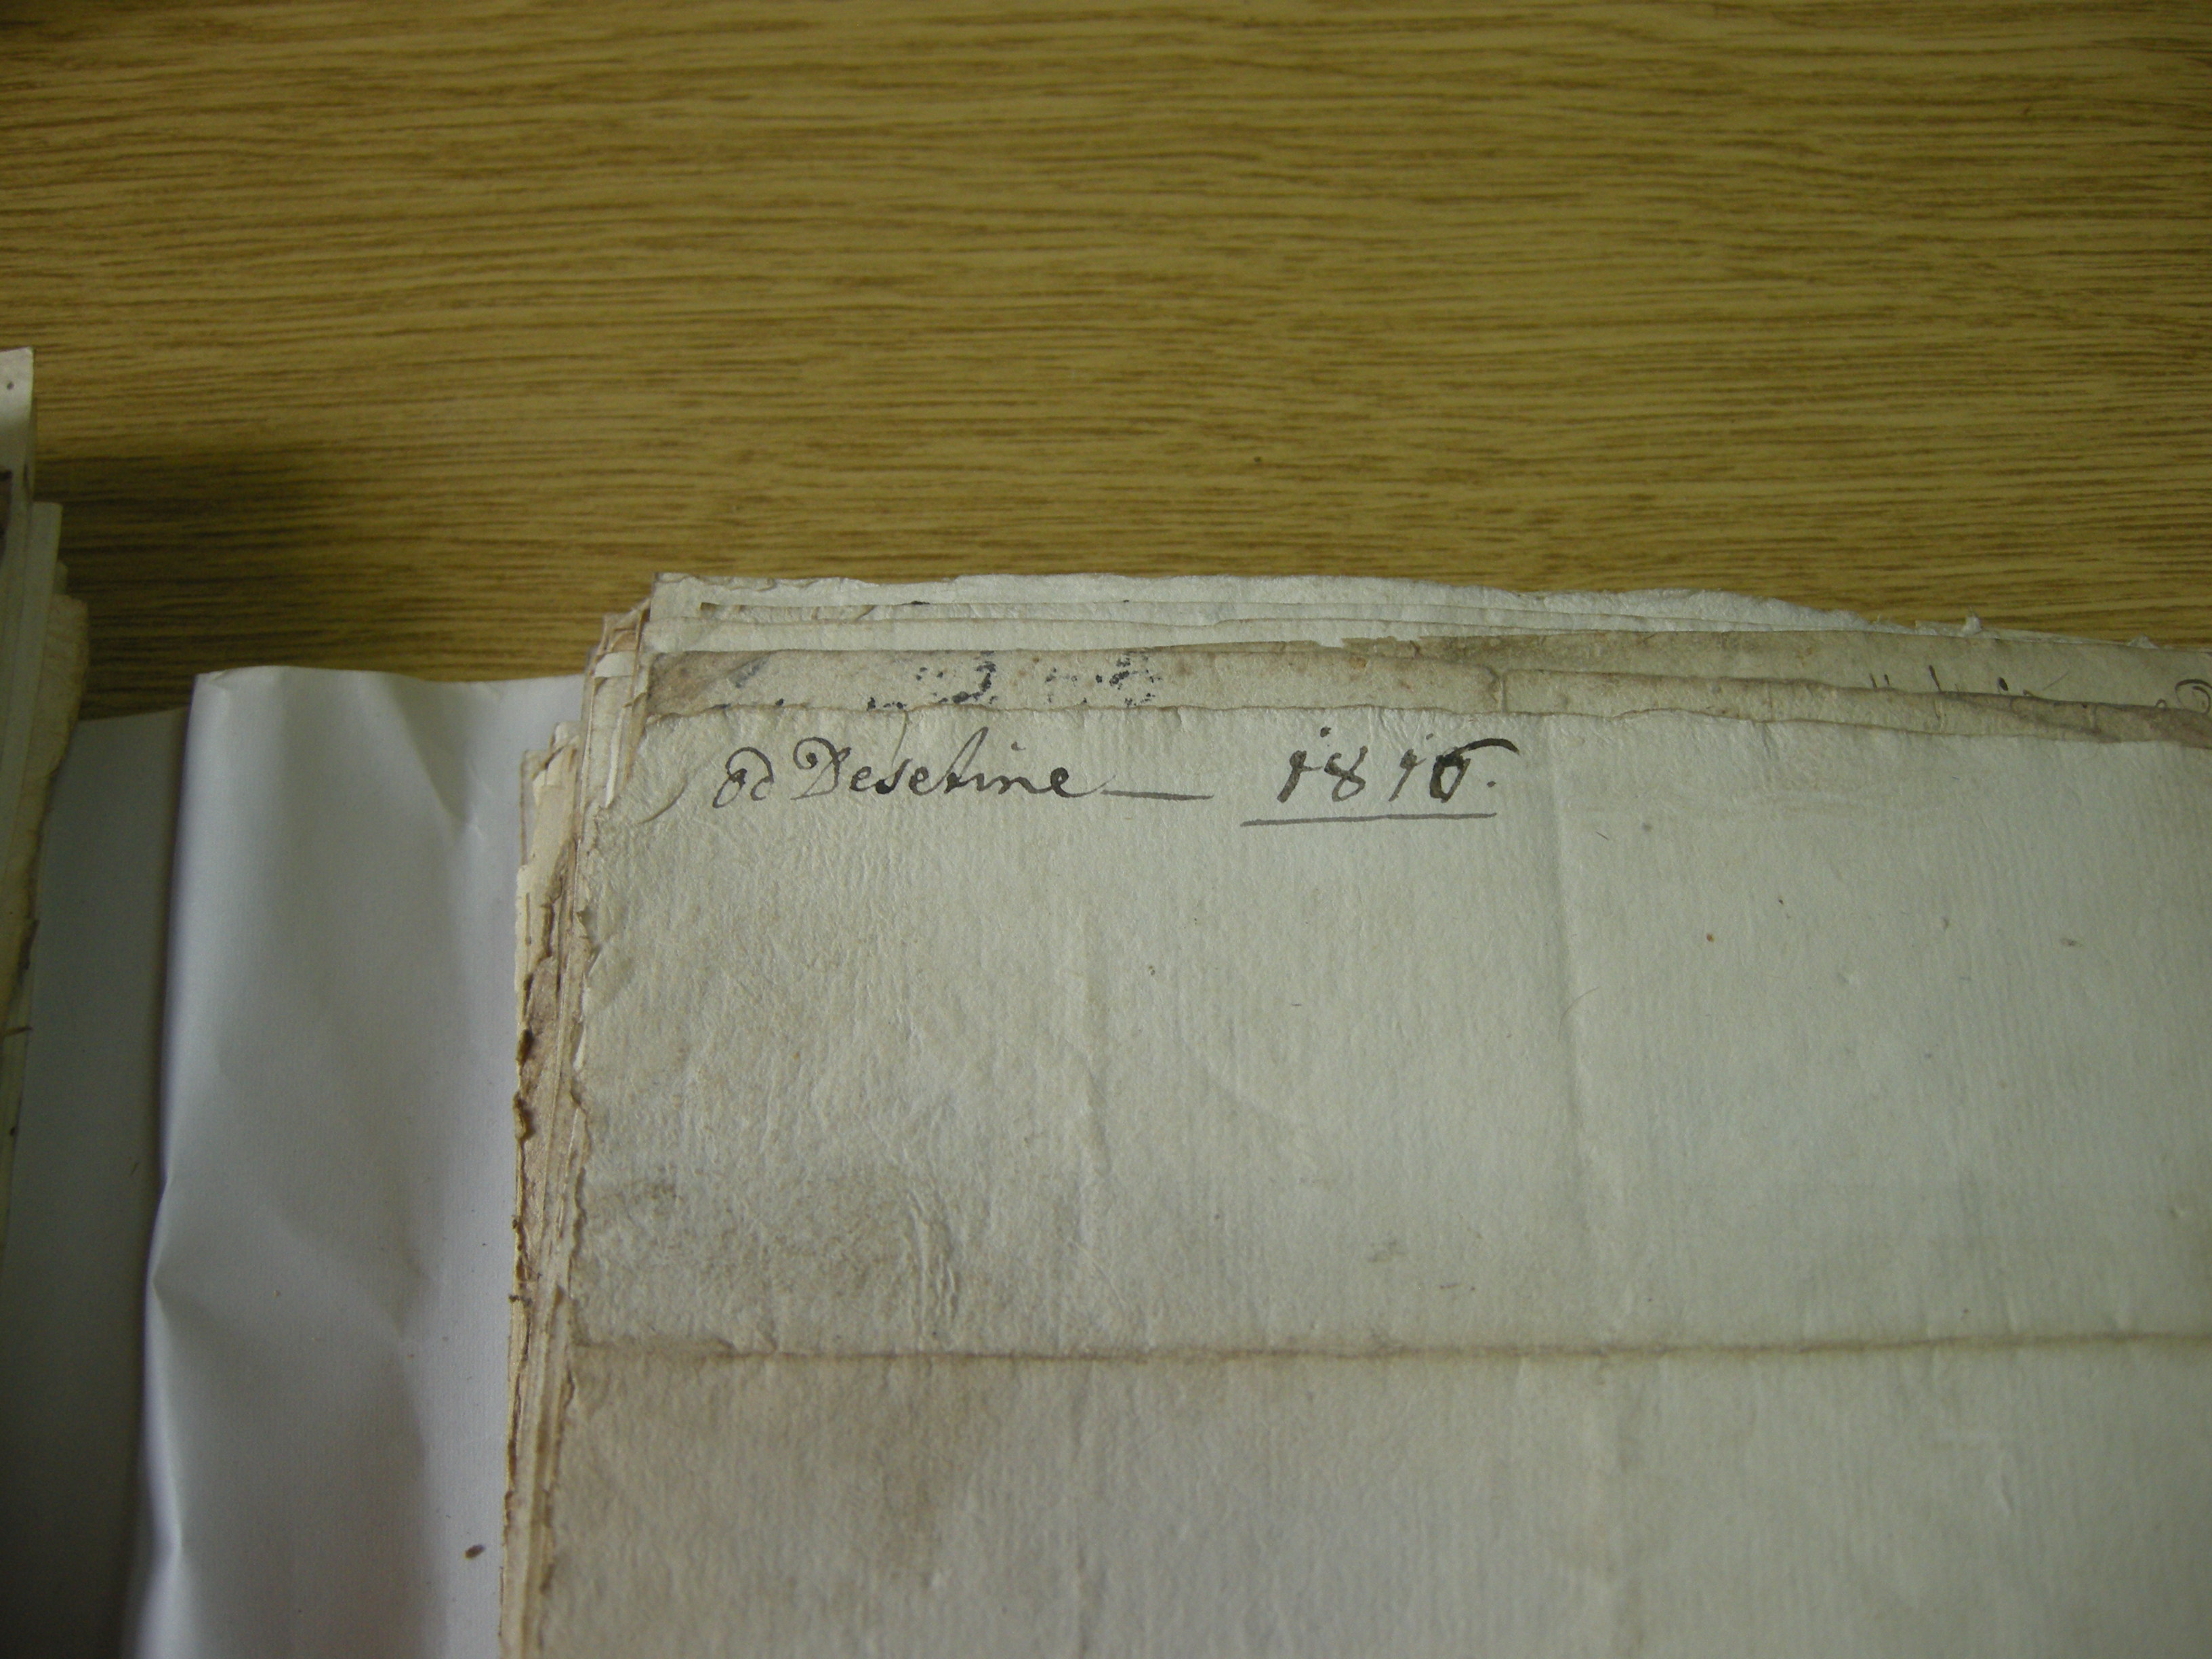 od Desetine — 1816.